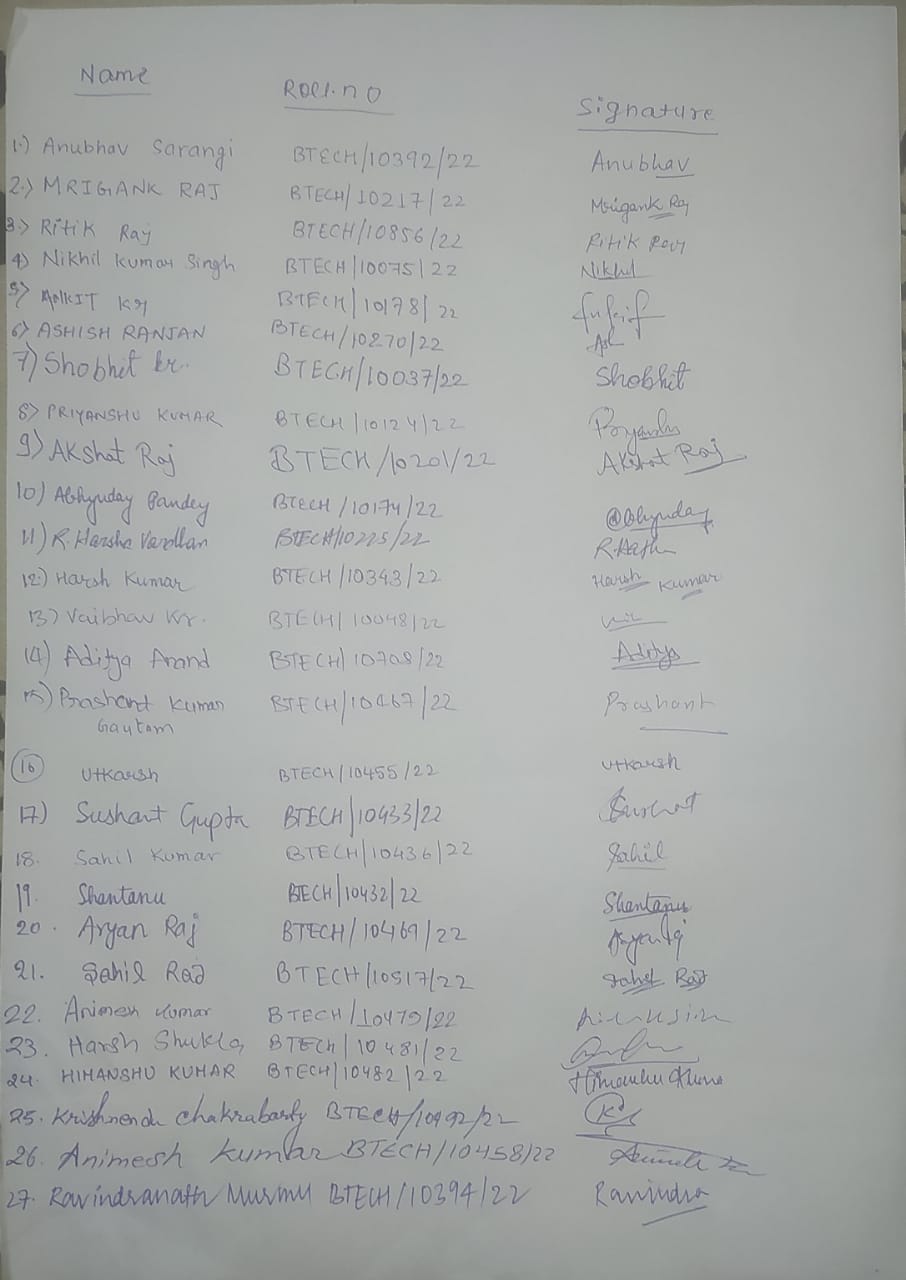 Name Roll.no Signature
1.) Anubhav Sarangi BTECH/10392/22 Anubhav
2.) MRIGANK RAJ BTECH/10217/22 Mrigank Raj
3.) Ritik Raj BTECH/10856/22 Ritik Raj
4) Nikhil Kumar Singh BTECH/10075/22 Nikhil
5) Kr BTECH/10178/22
6) ASHISH RANJAN BTECH/10270/22 Ash
7) Shobhit kr. BTECH/10037/22 Shobhit
8) PRIYANSHU KUMAR BTECH/10124/22 Priyanshu
9) Akshat Raj BTECH/10201/22 Akshat Raj
10) Abhyuday Pandey BTECH/10174/22 @bhyuday
11) R. Harsha Vardhan BTECH/10225/22
12.) Harsh Kumar BTECH/10343/22 Harsh Kumar
13) Vaibhav Kr. BTECH/10048/22
14) Aditya Anand BTECH/10708/22 Aditya
15) Prashant Kumar BTECH/10467/22 Prashant
Gautam
16 Utkarsh BTECH/10455/22 Utkarsh
17) Sushant Gupta BTECH/10433/22 Sushant
18. Sahil Kumar BTECH/10436/22 Sahil
19. Shantanu BTECH/10432/22 Shantanu
20. Aryan Raj BTECH/10469/22
21. Sahil Raj BTECH/10517/22 Sahil Raj
22. Animesh Kumar BTECH/10479/22
23. Harsh Shukla BTECH/10481/22
24. HIMANSHU KUMAR BTECH/10482/22 Himanshu
25. Krishnendu Chakrabarty BTECH/10492/22
26. Animesh Kumar BTECH/10458/22
27. Ravindranath Murmu BTECH/10394/22 Ravindra